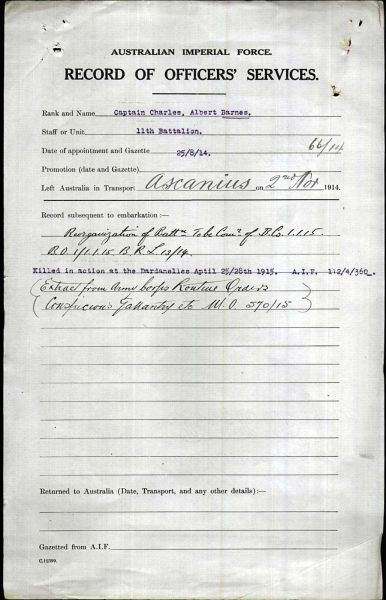 AUSTRALIAN IMPERIAL FORCE.
RECORD OF OFFICERS' SERVICES.
Rank and Name Captain Charles, Albert Barnes.
Staff or Unit 11th Battalion.
Date of appointment and Gazette 25/8/14. 66/14
Promotion (date and Gazette)
Left Australia in Transport: Ascanius on 2nd Nov 1914.
Record subsequent to embarkation:—
Reorganization of Battn To be Comr of D. Co. 1.1.15
B.O. 1/1.1.15 B.R.L. 13/14.
Killed in action at the Dardanelles Aptil 25/28th 1915. A.I.F. 112/4/360.
(Extract from Army Corps Routine Orders)
(Conspicuous Gallantry etc M.O. 570/15)
Returned to Australia (Date, Transport, and any other details):—
Gazetted from A.I.F.
C.12599.